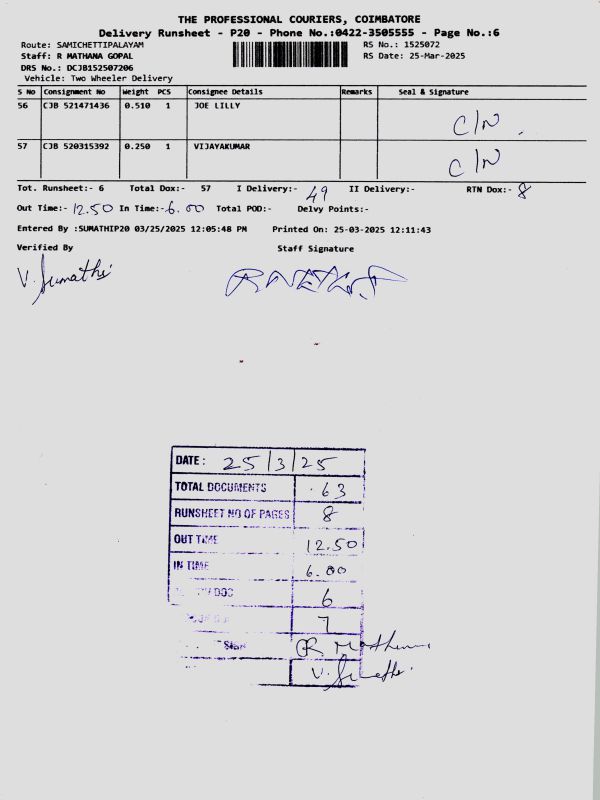 THE PROFESSIONAL COURIERS, COIMBATORE
Delivery Runsheet - P20 - Phone No.:0422-3505555 - Page No.:6
Route: SAMICHETTIPALAYAM RS No.: 1525072
Staff: R MATHANA GOPAL RS Date: 25-Mar-2025
DRS No.: DCJB152507206
Vehicle: Two Wheeler Delivery
S No Consignment No Weight PCS Consignee Details Remarks Seal & Signature
56 CJB 521471436 0.510 1 JOE LILLY C/N
57 CJB 520315392 0.250 1 VIJAYAKUMAR C/N
Tot. Runsheet:- 6 Total Dox:- 57 I Delivery:- 49 II Delivery:- RTN Dox:- 8
Out Time:- 12.50 In Time:- 6.00 Total POD:- Delvy Points:-
Entered By :SUMATHIP20 03/25/2025 12:05:48 PM Printed On: 25-03-2025 12:11:43
Verified By Staff Signature
V. Sumathi
DATE: 25/3/25
TOTAL DOCUMENTS 63
RUNSHEET NO OF PAGES 8
OUT TIME 12.50
IN TIME 6.00
DOC 6
7
Sign